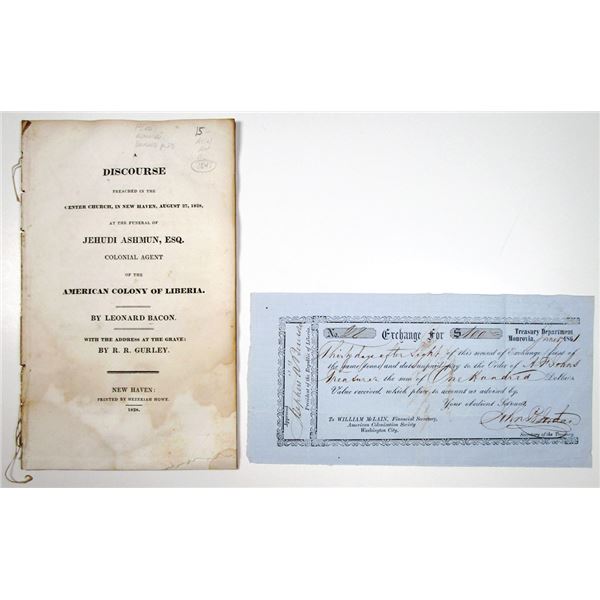 15
A
DISCOURSE
PREACHED IN THE
CENTER CHURCH, IN NEW HAVEN, AUGUST 27, 1828,
AT THE FUNERAL OF
JEHUDI ASHMUN, ESQ.
COLONIAL AGENT
OF THE
AMERICAN COLONY OF LIBERIA.
BY LEONARD BACON.
WITH THE ADDRESS AT THE GRAVE:
BY R. R. GURLEY.
NEW HAVEN:
PRINTED BY HEZEKIAH HOWE.
1828.
President of the Republic of Liberia
No. Exchange For $100
Treasury Department
Monrovia, 1861
Thirty days after sight of this second of Exchange (first of
the same tenor and date unpaid) pay to the Order of
Treasurer the sum of One Hundred Dollars
Value received, which place to account as advised by
Your obedient Servant,
To WILLIAM McLAIN, Financial Secretary,
American Colonization Society
Washington City.
Secretary of the